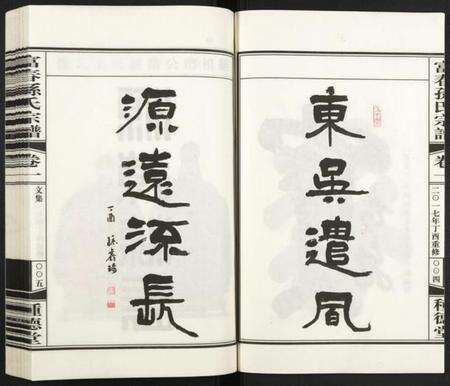 富春孫氏宗譜
卷一
二〇一七年丁酉重修
〇〇四
種德堂
東吳遺風
源遠流長
丁酉
富春孫氏宗譜
卷一
文集
〇〇五
種德堂